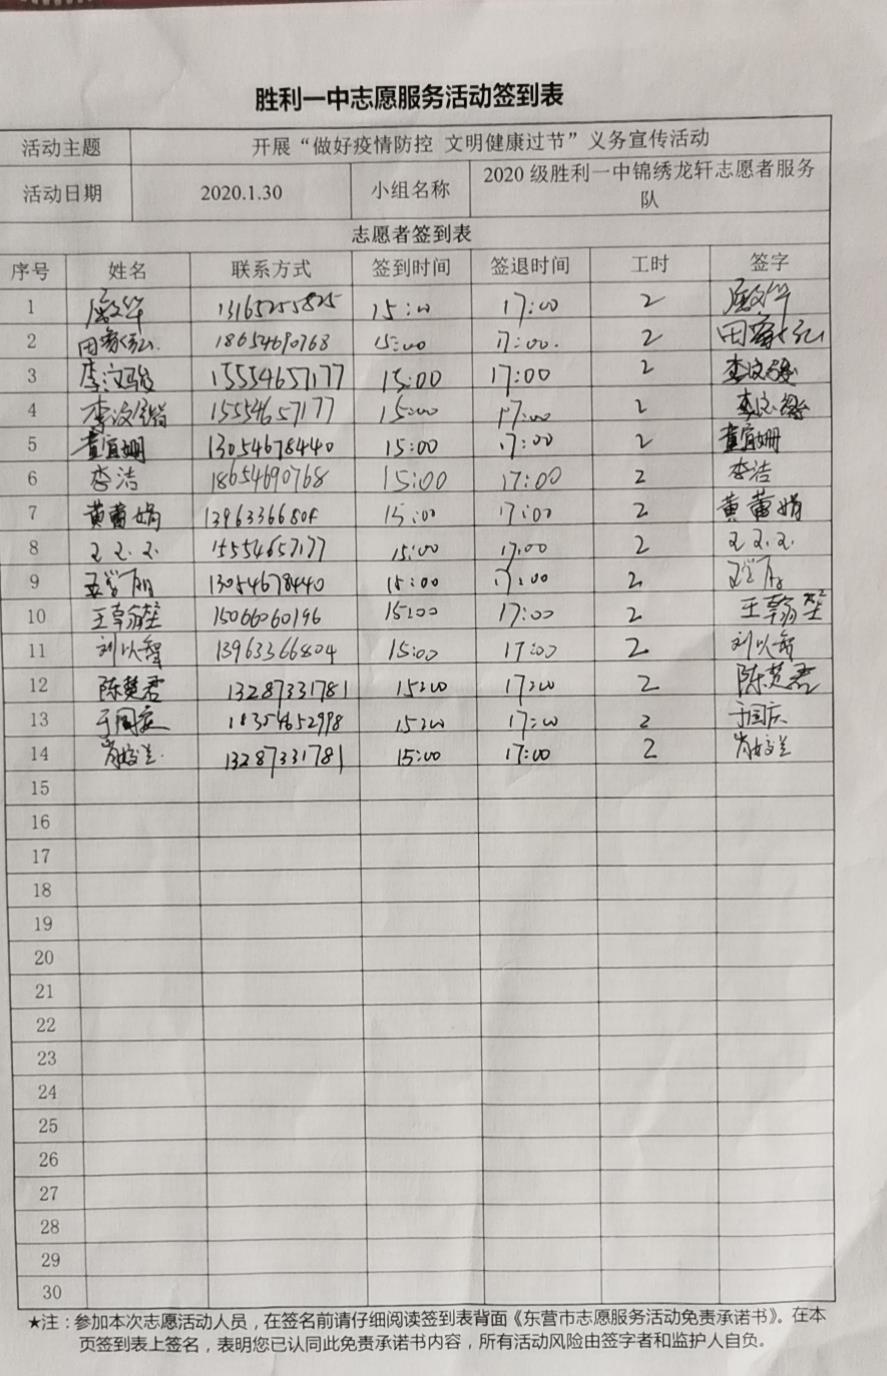 胜利一中志愿服务活动签到表
活动主题 开展“做好疫情防控 文明健康过节”义务宣传活动
活动日期 2020.1.30 小组名称 2020级胜利一中锦绣龙轩志愿者服务
队
志愿者签到表
序号 姓名 联系方式 签到时间 签退时间 工时 签字
1 13165255825 15:00 17:00 2
2 18654690768 15:00 17:00. 2
3 15554657177 15:00 17:00 2
4 15554657177 15:00 17:00 2
5 董宜姗 13054678440 15:00 17:00 2 董宜姗
6 李洁 18654690768 15:00 17:00 2 李洁
7 黄蕾娟 1396336680 15:00 17:00 2 黄蕾娟
8 15554657177 15:00 17:00 2
9 13054678440 15:00 17:00 2
10 15066060196 15:00 17:00 2
11 刘以智 13963366804 15:00 17:00 2 刘以智
12 陈楚君 13287331781 15:00 17:00 2 陈楚君
13 于国庆 15:00 17:00 2 于国庆
14 13287331781 15:00 17:00 2
15
16
17
18
19
20
21
22
23
24
25
26
27
28
29
30
★注：参加本次志愿活动人员，在签名前请仔细阅读签到表背面《东营市志愿服务活动免责承诺书》。在本
页签到表上签名，表明您已认同此免责承诺书内容，所有活动风险由签字者和监护人自负。